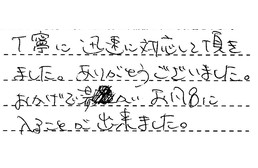 丁寧に迅速に対応して頂き
ました。ありがとうございました。
おかげで お風呂に
入ることが出来ました。